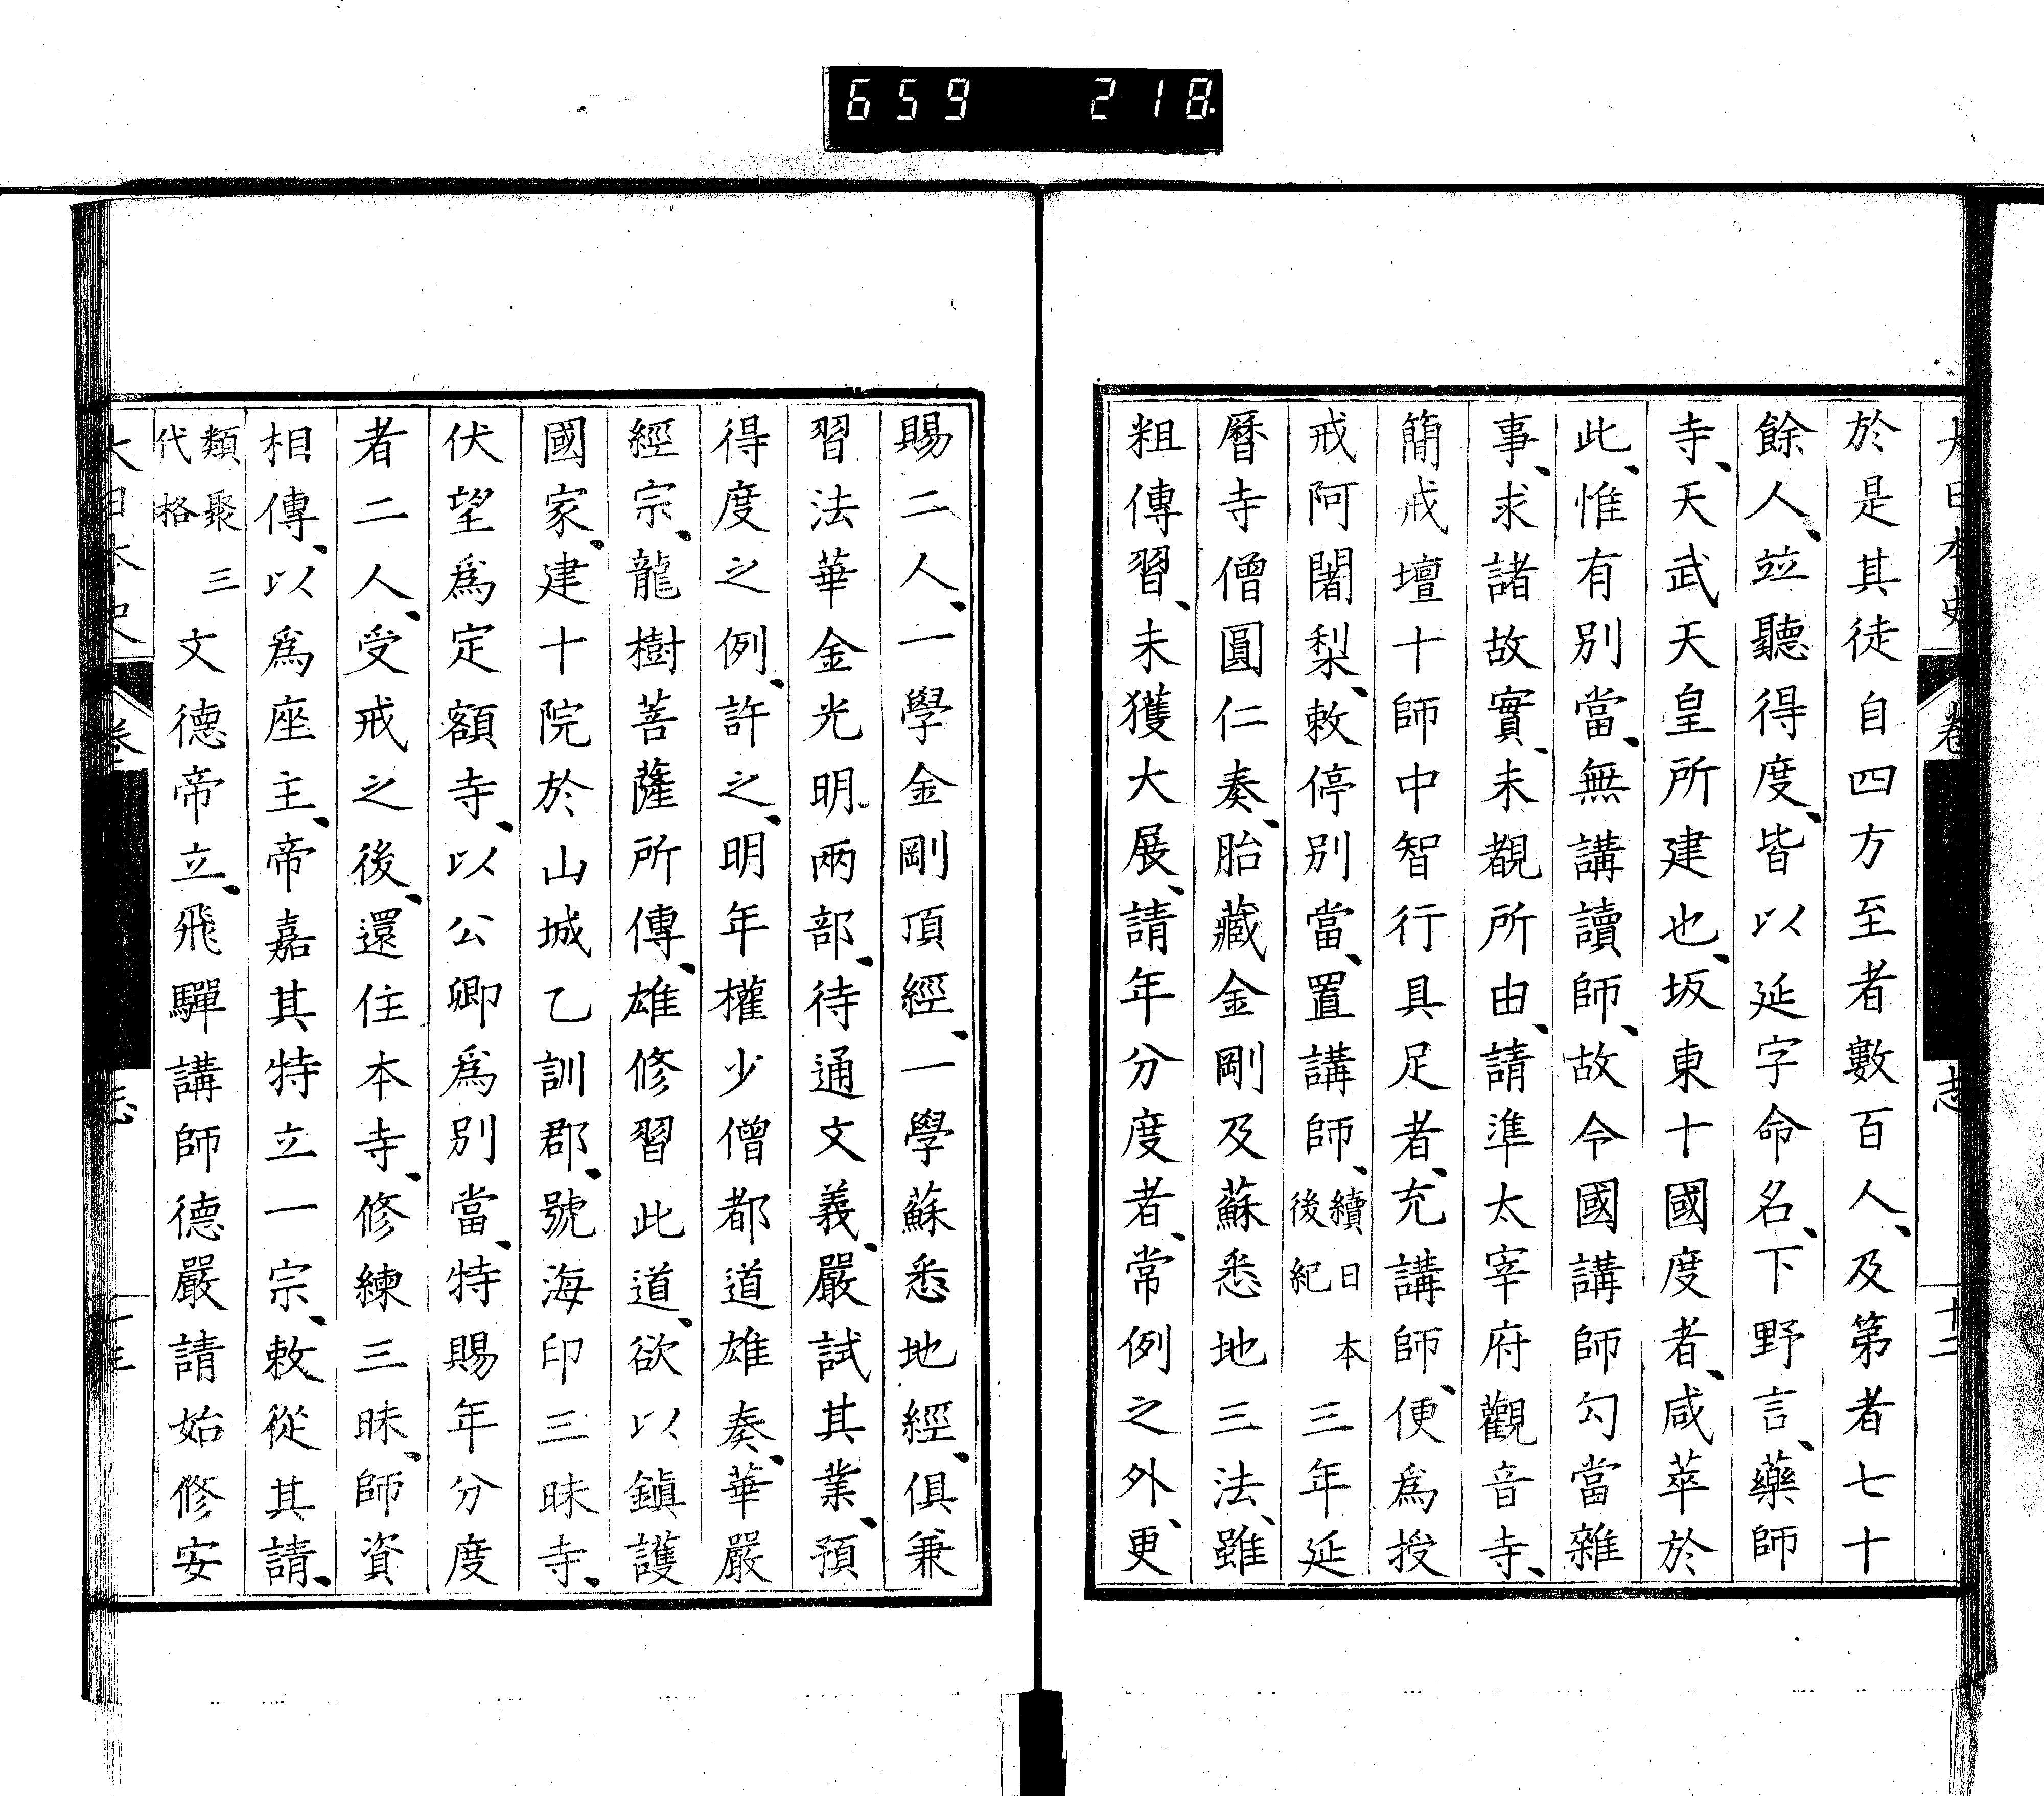 659 218.
大日本史 卷 志 十二
於是其徒自四方至者數百人、及第者七十
餘人、竝聽得度、皆以延字命名、下野言、藥師
寺、天武天皇所建也、坂東十國度者、咸萃於
此、惟有別當、無講讀師、故令國講師勾當雜
事、求諸故實、未覩所由、請準太宰府觀音寺、
簡戒壇十師中智行具足者、充講師、便爲授
戒阿闍梨、敕停別當、置講師、續日本後紀 三年延
曆寺僧圓仁奏、胎藏金剛及蘇悉地三法、雖
粗傳習、未獲大展、請年分度者、常例之外、更
賜二人、一學金剛頂經、一學蘇悉地經、俱兼
習法華金光明兩部、待通文義、嚴試其業、預
得度之例、許之、明年權少僧都道雄奏、華嚴
經宗、龍樹菩薩所傳、雄修習此道、欲以鎭護
國家、建十院於山城乙訓郡、號海印三昧寺、
伏望爲定額寺、以公卿爲別當、特賜年分度
者二人、受戒之後、還住本寺、修練三昧、師資
相傳、以爲座主、帝嘉其特立一宗、敕從其請、
類聚三代格 文德帝立、飛驒講師德嚴請始修安
大日本史 卷 志